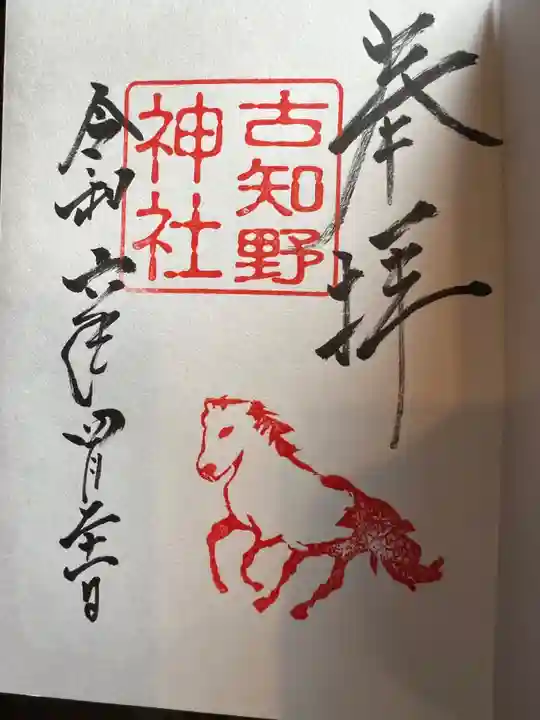 奉拝
古知野
神社
令和六年四月廿一日